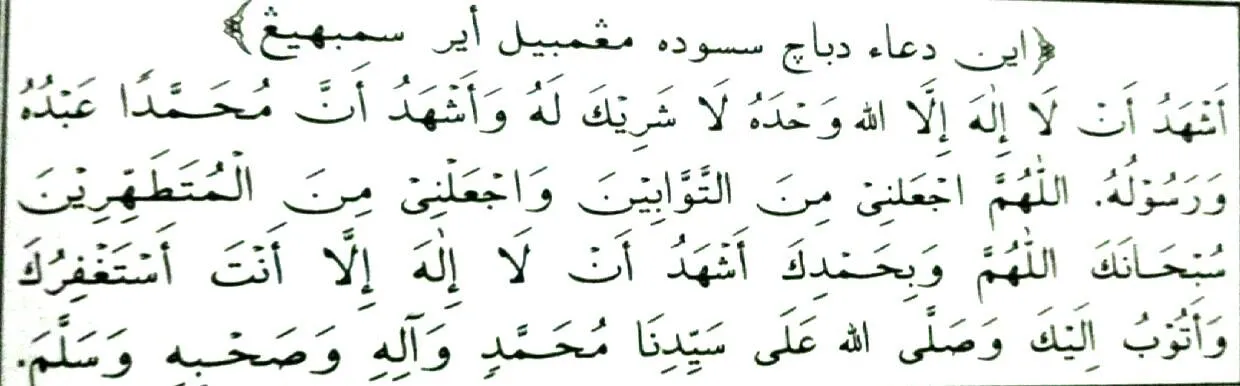 ﴿اين دعاء دباچ سسوده مڠمبيل أير سمبهيڠ﴾
أَشْهَدُ أَنْ لَا إِلٰهَ إِلَّا الله وَحْدَهُ لَا شَرِيْكَ لَهُ وَأَشْهَدُ أَنَّ مُحَمَّدًا عَبْدُهُ
وَرَسُوْلُهُ. اللّٰهُمَّ اجْعَلنِىْ مِنَ التَّوَّابِيْنَ وَاجْعَلْنِىْ مِنَ الْمُتَطَهِّرِيْنَ
سُبْحَانَكَ اللّٰهُمَّ وَبِحَمْدِكَ أَشْهَدُ أَنْ لَا إِلٰهَ إِلَّا أَنْتَ أَسْتَغْفِرُكَ
وَأَتُوْبُ اِلَيْكَ وَصَلَّى الله عَلَى سَيِّدِنَا مُحَمَّدٍ وَآلِهِ وَصَحْبِهِ وَسَلَّمَ.